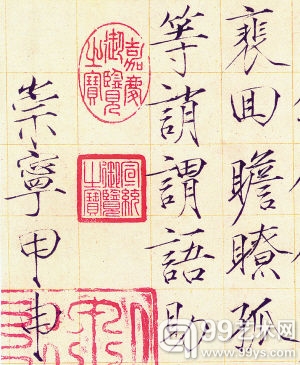 裵囬瞻瞭孤
等誚謂語助
嘉慶御覽之寶
宣統御覽之寶
崇寧甲申
99艺术网
www.99ys.com